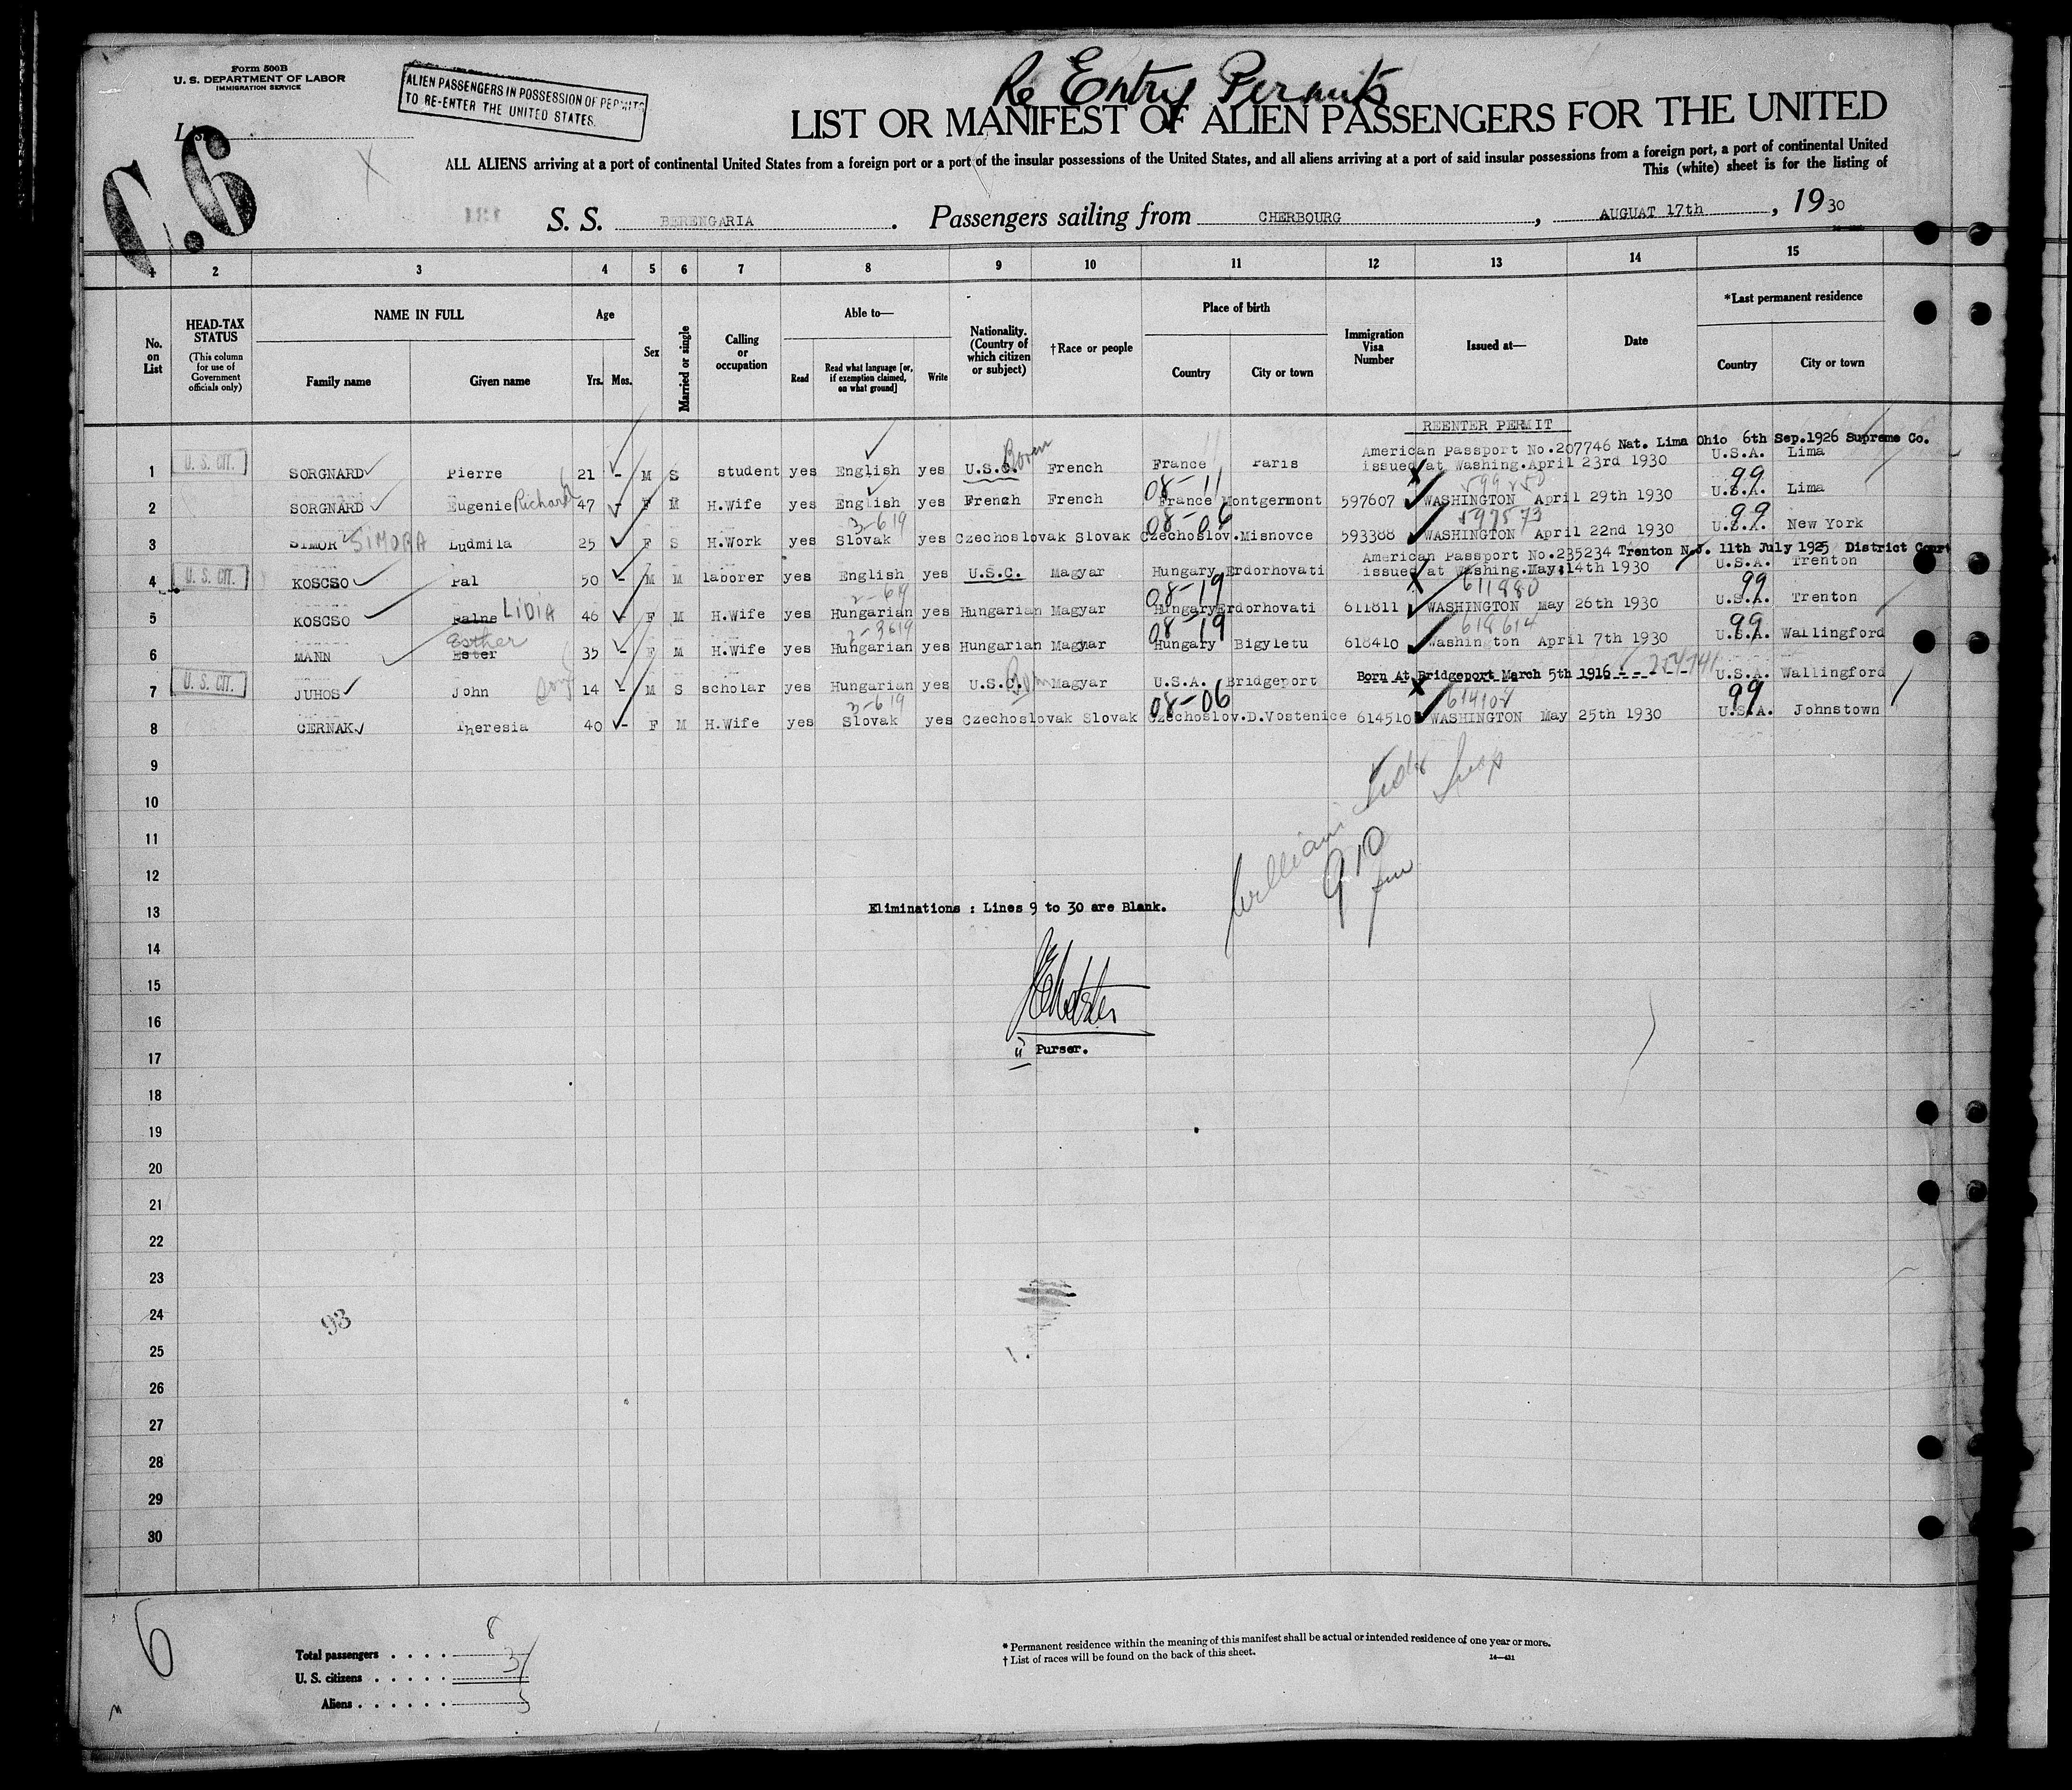 Form 500B
U. S. DEPARTMENT OF LABOR
IMMIGRATION SERVICE
ALIEN PASSENGERS IN POSSESSION OF PERMITS
TO RE-ENTER THE UNITED STATES.
Re Entry Permits
LIST OR MANIFEST OF ALIEN PASSENGERS FOR THE UNITED
C.6
ALL ALIENS arriving at a port of continental United States from a foreign port or a port of the insular possessions of the United States, and all aliens arriving at a port of said insular possessions from a foreign port, a port of continental United
This (white) sheet is for the listing of
S. S. BERENGARIA. Passengers sailing from CHERBOURG, AUGUAT 17th, 1930
1 2 3 4 5 6 7 8 9 10 11 12 13 14 15
No. on List
HEAD-TAX STATUS (This column for use of Government officials only)
NAME IN FULL
Family name Given name
Age
Yrs. Mos.
Sex
Married or single
Calling or occupation
Able to—
Read Read what language [or, if exemption claimed, on what ground] Write
Nationality. (Country of which citizen or subject)
†Race or people
Place of birth
Country City or town
Immigration Visa Number
Issued at—
Date
*Last permanent residence
Country City or town
REENTER PERMIT
American Passport No.207746 Nat. Lima Ohio 6th Sep.1926 Supreme Co.
1 U. S. CIT. SORGNARD Pierre 21 - M S student yes English yes U.S.C. French France Paris issued at Washing.April 23rd 1930 U.S.A. Lima
08-11 99
2 SORGNARD Eugenie Richard 47 - F M H.Wife yes English yes French French France Montgermont 597607 WASHINGTON April 29th 1930 U.S.A. Lima
3-619 08-06 597573 99
3 SIMOR SIMORA Ludmila 25 F S H.Work yes Slovak yes Czechoslovak Slovak Czechoslov.Misnovce 593388 WASHINGTON April 22nd 1930 U.S.A. New York
American Passport No.235234 Trenton N.J. 11th July 1925 District Court
4 U. S. CIT. KOSCSO Pal 50 - M M laborer yes English yes U.S.C. Magyar Hungary Erdorhovati issued at Washing.May.14th 1930 U.S.A. Trenton
08-19 611880 99
5 KOSCSO Palne LIDIA 46 - F M H.Wife yes Hungarian yes Hungarian Magyar Hungary Erdorhovati 611811 WASHINGTON May 26th 1930 U.S.A. Trenton
Esther 08-19 618614 99
6 MANN Ester 35 - F M H.Wife yes Hungarian yes Hungarian Magyar Hungary Bigyletu 618410 Washington April 7th 1930 U.S.A. Wallingford
7 U. S. CIT. JUHOS John 14 - M S scholar yes Hungarian yes U.S.C. Magyar U.S.A. Bridgeport Born At Bridgeport March 5th 1916 - - - - U.S.A. Wallingford
3-619 08-06 614107 99
8 CERNAK Theresia 40 - F M H.Wife yes Slovak yes Czechoslovak Slovak Czechoslov.D.Vostenice 614510 WASHINGTON May 25th 1930 U.S.A. Johnstown
9
10
11
12
13 Eliminations : Lines 9 to 30 are Blank.
14
15
16
17 Purser.
18
19
20
21
22
23
24
93
25
26
27
28
29
30
6
Total passengers . . . . 8
U. S. citizens . . . . . 3
Aliens . . . . . . 5
* Permanent residence within the meaning of this manifest shall be actual or intended residence of one year or more.
† List of races will be found on the back of this sheet.
14—431